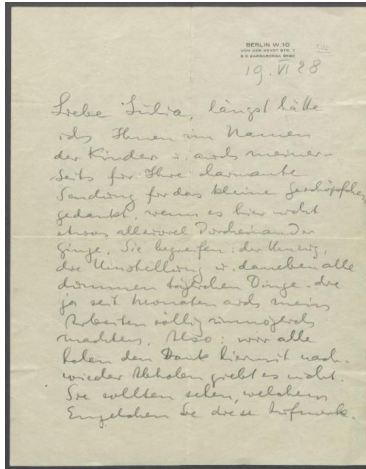 BERLIN W. 10
VON DER HEYDT STR. 7
19. VI 28
Liebe Julia, längst hätte
ich Ihnen im Namen
der Kinder u. auch meiner-
seits für Ihre charmante
Sendung für das kleine Geschöpfchen
gedankt, wenn es hier nicht
etwas allzuviel Durcheinander
ginge. Sie begreifen: der Umzug,
die Umstellung u. daneben alle
dummen täglichen Dinge, die
ja seit Monaten auch mein
Arbeiten völlig unmöglich
machten. Also: wir alle
holen den Dank hiermit nach.
wieder Abholen giebt es nicht.
Sie sollten sehen, welchem
Engelchen Sie diese